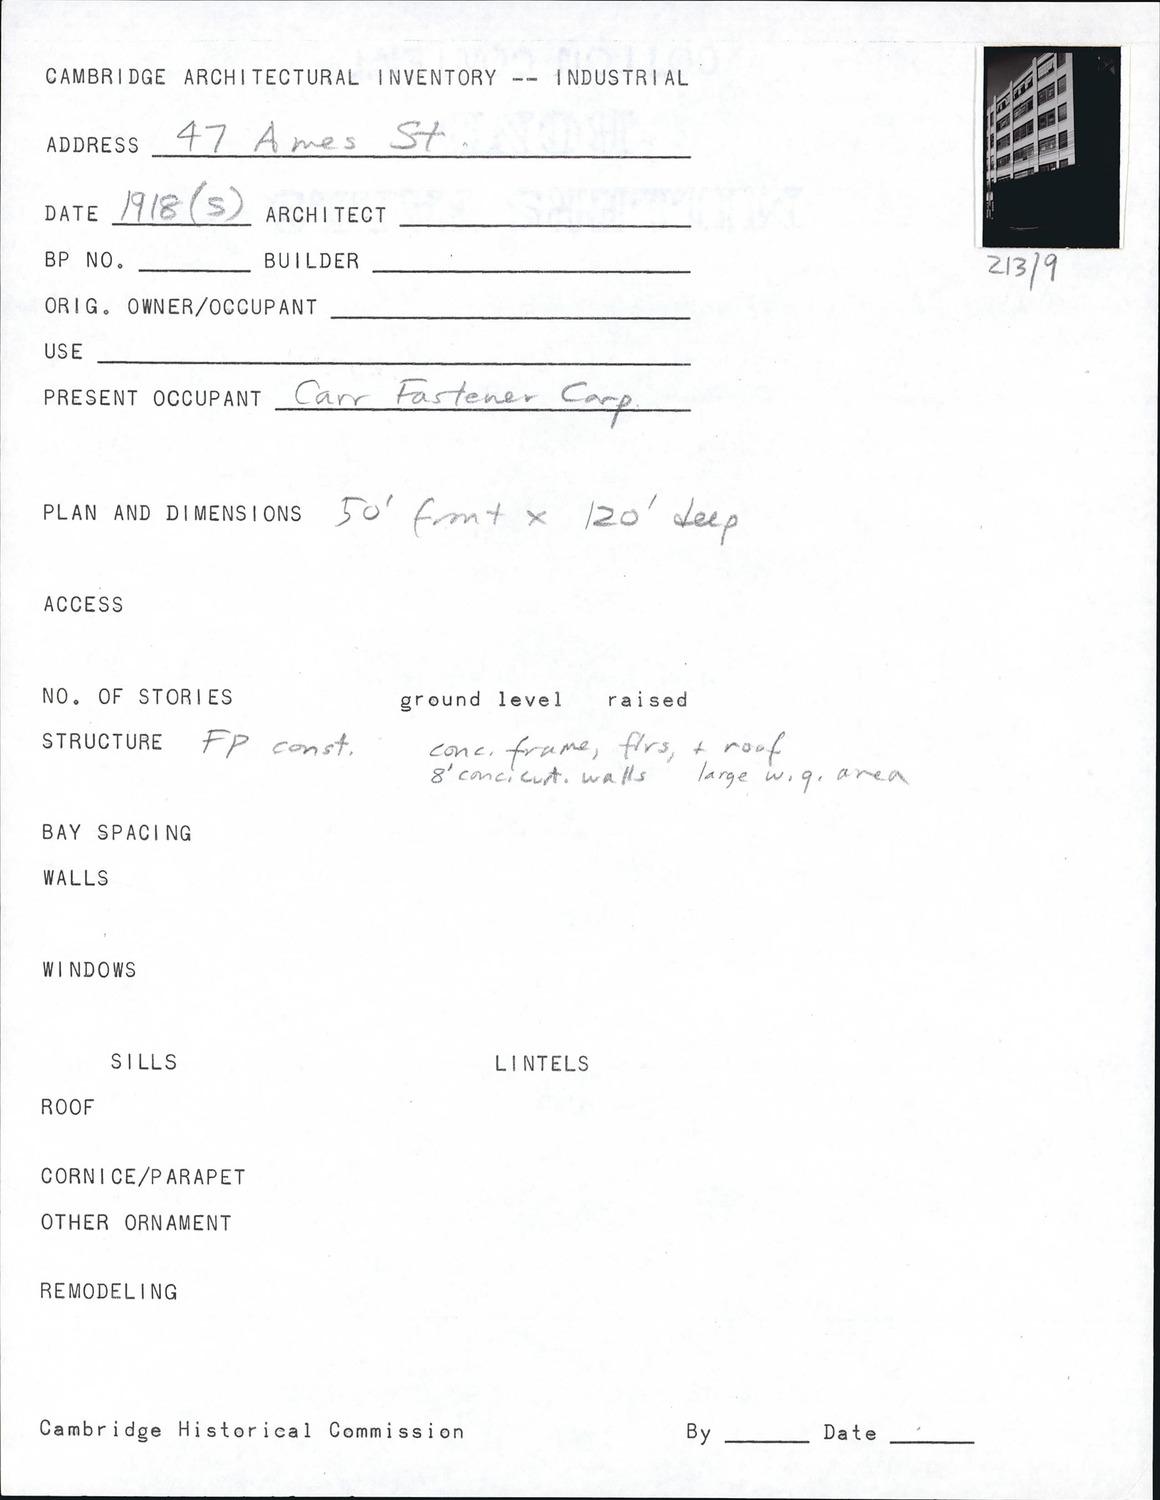 CAMBRIDGE ARCHITECTURAL INVENTORY -- INDUSTRIAL
ADDRESS 47 Ames St.
DATE 1918(s) ARCHITECT
213/9
BP NO. BUILDER
ORIG. OWNER/OCCUPANT
USE
PRESENT OCCUPANT Carr Fastener Corp.
PLAN AND DIMENSIONS 50' front x 120' deep
ACCESS
NO. OF STORIES ground level raised
STRUCTURE FP const. conc. frame, flrs, + roof
8' conc. curt. walls large w.g. area
BAY SPACING
WALLS
WINDOWS
SILLS LINTELS
ROOF
CORNICE/PARAPET
OTHER ORNAMENT
REMODELING
Cambridge Historical Commission By Date